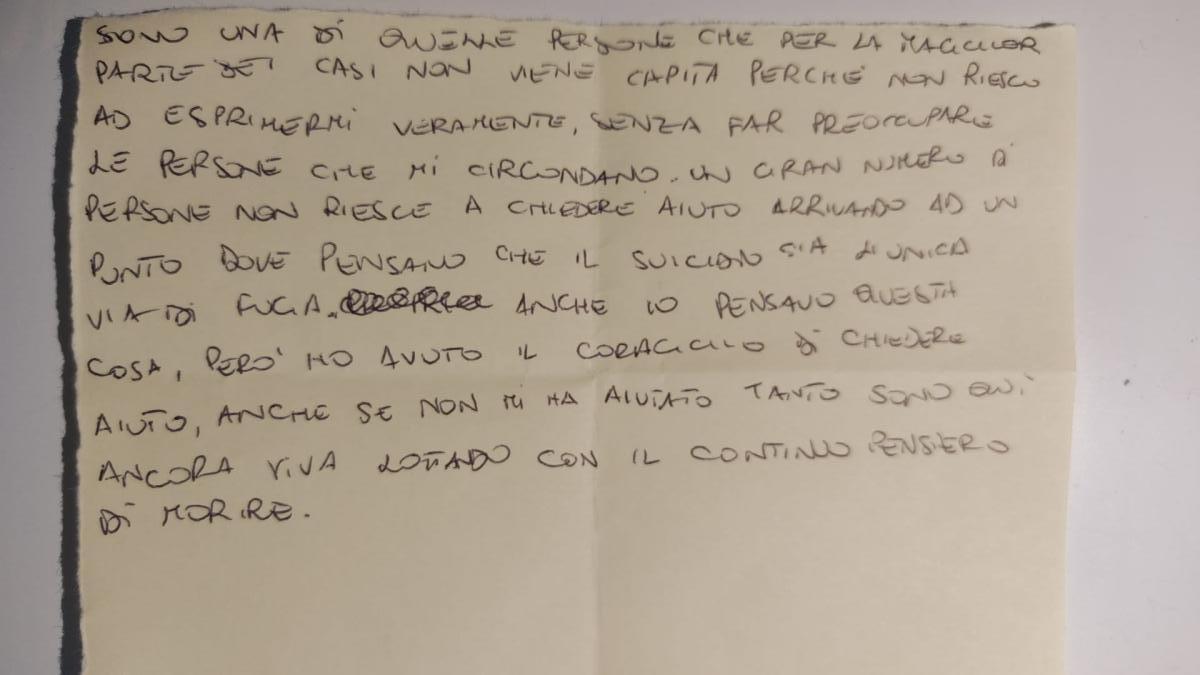 SONO UNA DI QUELLE PERSONE CHE PER LA MAGGIOR
PARTE DEI CASI NON VIENE CAPITA PERCHE' NON RIESCO
AD ESPRIMERMI VERAMENTE, SENZA FAR PREOCCUPARE
LE PERSONE CHE MI CIRCONDANO. UN GRAN NUMERO DI
PERSONE NON RIESCE A CHIEDERE AIUTO ARRIVANDO AD UN
PUNTO DOVE PENSANO CHE IL SUICIDIO SIA L'UNICA
VIA DI FUGA. ANCHE IO PENSAVO QUESTA
COSA, PERO' HO AVUTO IL CORAGGIO DI CHIEDERE
AIUTO, ANCHE SE NON MI HA AIUTATO TANTO SONO QUI
ANCORA VIVA LOTTANDO CON IL CONTINUO PENSIERO
DI MORIRE.